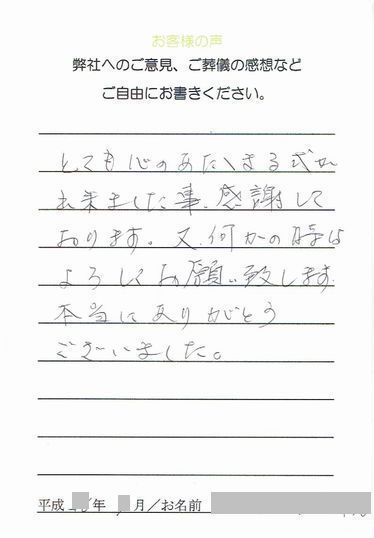 お客様の声
弊社へのご意見、ご葬儀の感想など
ご自由にお書きください。
とても心のあたたまる式が
出来ました事、感謝して
おります。又、何かの時は
よろしくお願い致します。
本当にありがとう
ございました。
平成 年 月/お名前